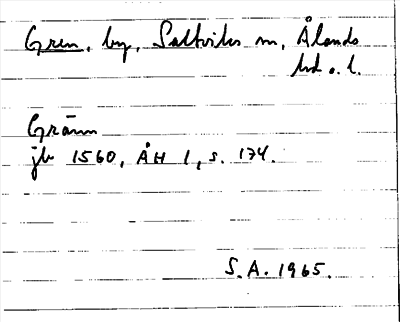 Gren, by, Saltviks sn, Ålands
hd o. l.
Gränn
jb 1560, ÅH 1, s. 174.
S.A. 1965.